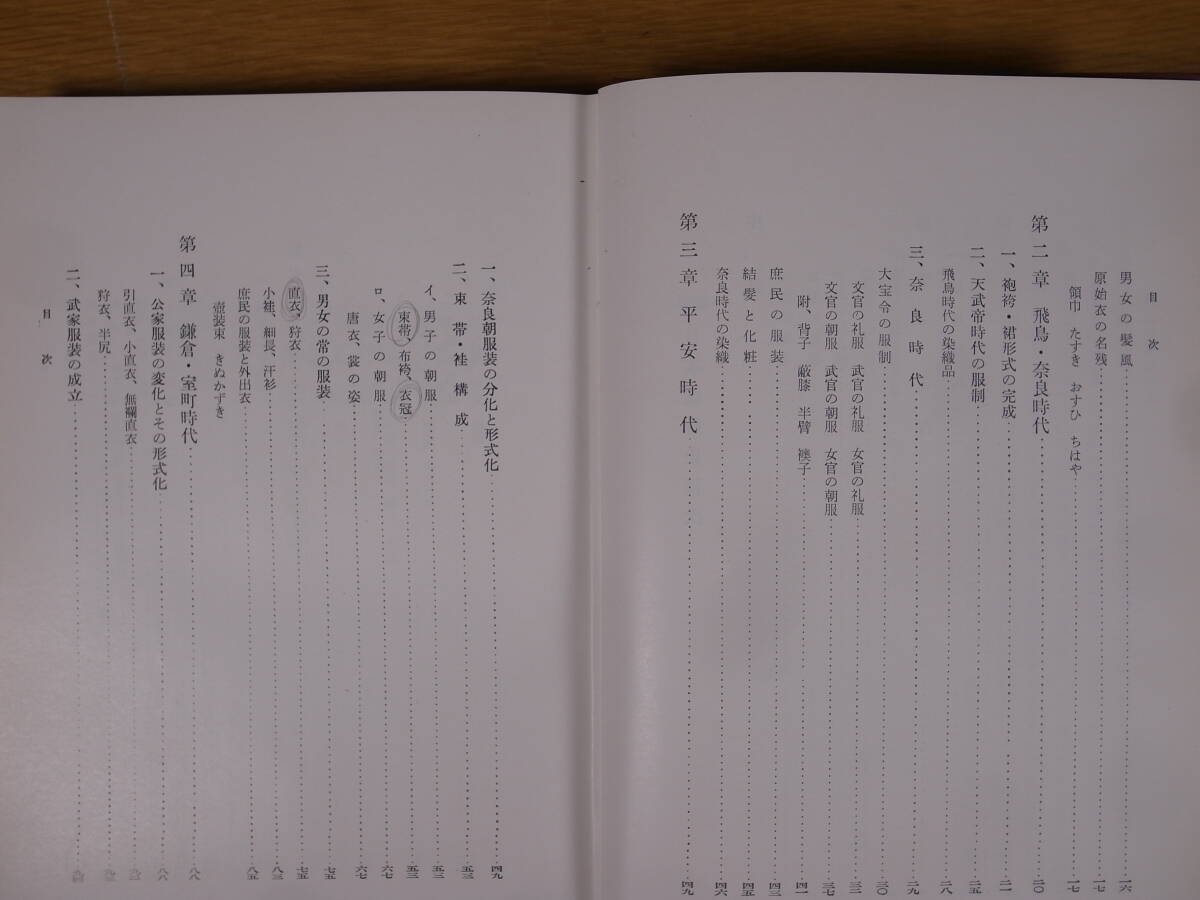 目次
男女の髪風 一六
原始衣の名残 一七
領巾 たすき おすひ ちはや 一七
第二章 飛鳥・奈良時代 二〇
一、袍袴・裙形式の完成 二一
二、天武帝時代の服制 二五
飛鳥時代の染織品 二八
三、奈良時代 二九
大宝令の服制 三〇
文官の礼服 武官の礼服 女官の礼服 三二
文官の朝服 武官の朝服 女官の朝服 三七
附、背子 蔽膝 半臂 襖子 四一
庶民の服装 四三
結髪と化粧 四五
奈良時代の染織 四六
第三章 平安時代 四九
一、奈良朝服装の分化と形式化 四九
二、束帯・袿構成 五三
イ、男子の朝服 五三
束帯、布袴、衣冠 五三
ロ、女子の朝服 六七
唐衣、裳の姿 六七
三、男女の常の服装 七五
直衣、狩衣 七五
小袿、細長、汗衫 八三
庶民の服装と外出衣 八五
壺装束 きぬかずき
第四章 鎌倉・室町時代 八八
一、公家服装の変化とその形式化 八八
引直衣、小直衣、無襴直衣
狩衣、半尻
二、武家服装の成立
目次